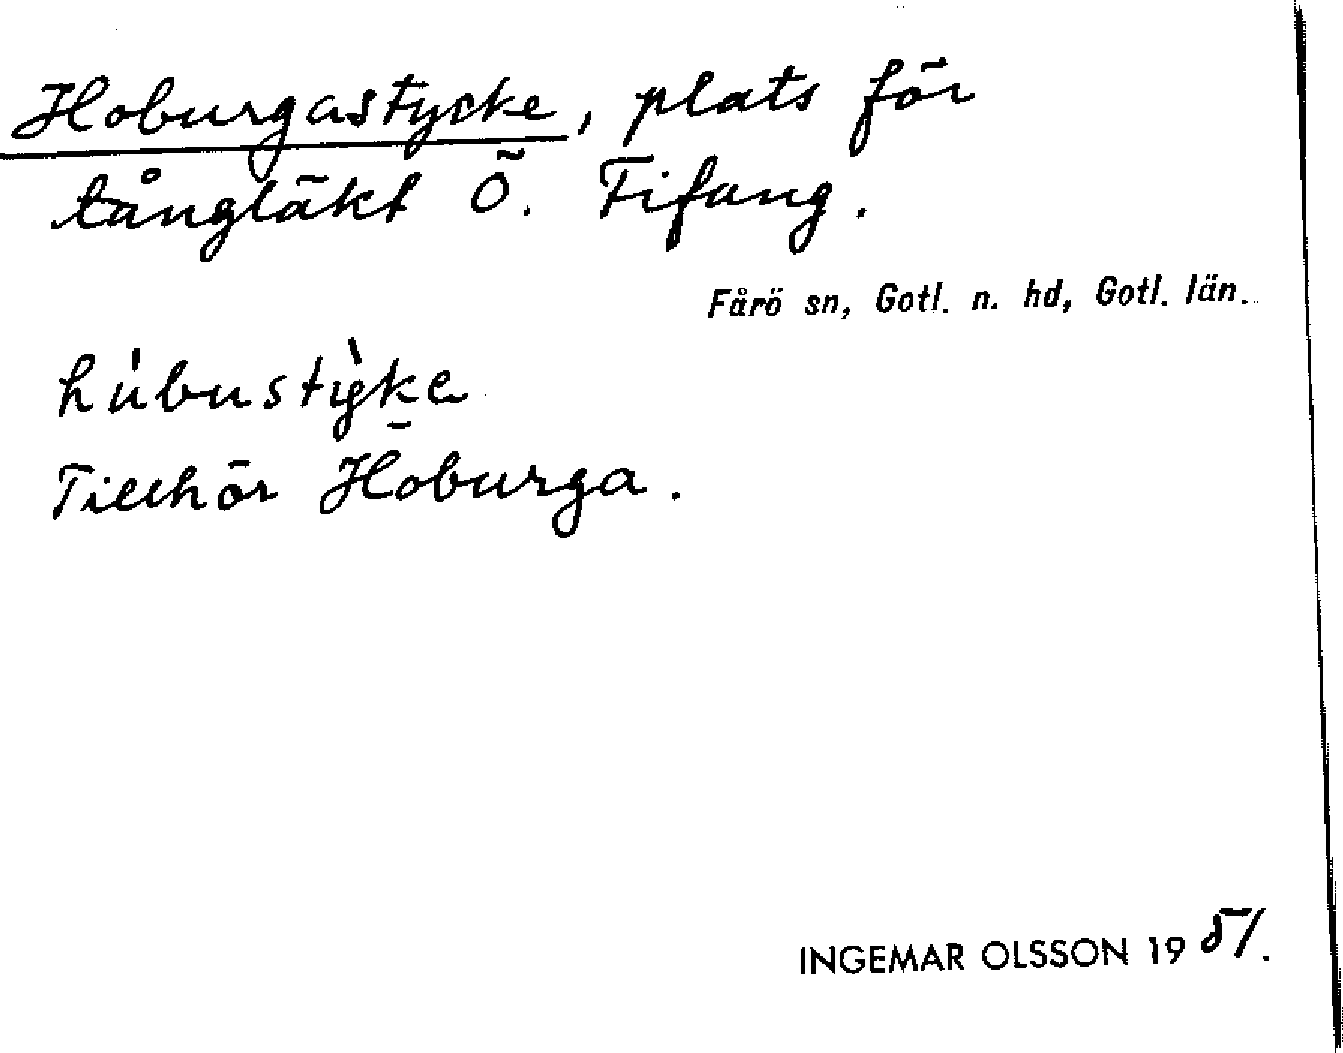 Hoburgastycke, plats för
tångtäkt Ö. Tifang.
Fårö sn, Gotl. n. hd, Gotl. län.
hùbustỳke
Tillhör Hoburga.
INGEMAR OLSSON 1951.